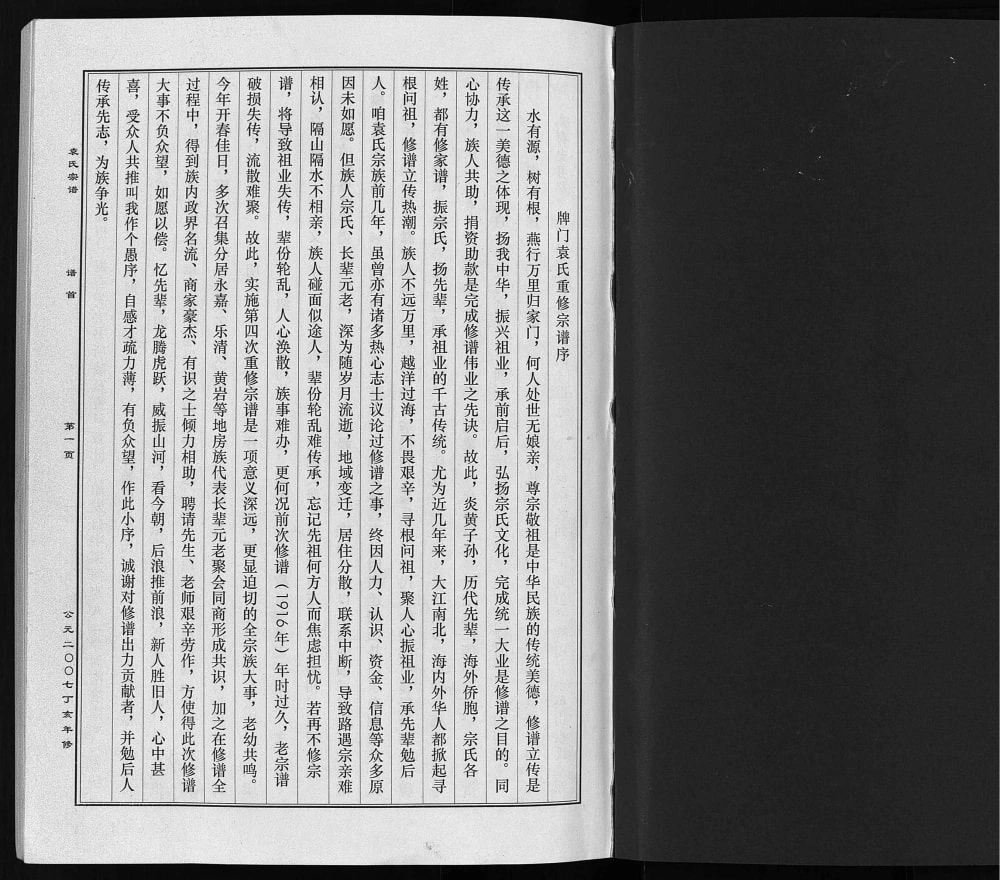 牌门袁氏重修宗谱序
水有源，树有根，燕行万里归家门，何人处世无娘亲，尊宗敬祖是中华民族的传统美德，修谱立传是
传承这一美德之体现，扬我中华，振兴祖业，承前启后，弘扬宗氏文化，完成统一大业是修谱之目的。同
心协力，族人共助，捐资助款是完成修谱伟业之先诀。故此，炎黄子孙，历代先辈，海外侨胞，宗氏各
姓，都有修家谱，振宗氏，扬先辈，承祖业的千古传统。尤为近几年来，大江南北，海内外华人都掀起寻
根问祖，修谱立传热潮。族人不远万里，越洋过海，不畏艰辛，寻根问祖，聚人心振祖业，承先辈勉后
人。咱袁氏宗族前几年，虽曾亦有诸多热心志士议论过修谱之事，终因人力、认识、资金、信息等众多原
因未如愿。但族人宗氏、长辈元老，深为随岁月流逝，地域变迁，居住分散，联系中断，导致路遇宗亲难
相认，隔山隔水不相亲，族人碰面似途人，辈份轮乱难传承，忘记先祖何方人而焦虑担忧。若再不修宗
谱，将导致祖业失传，辈份轮乱，人心涣散，族事难办，更何况前次修谱（1916年）年时过久，老宗谱
破损失传，流散难聚。故此，实施第四次重修宗谱是一项意义深远，更显迫切的全宗族大事，老幼共鸣。
今年开春佳日，多次召集分居永嘉、乐清、黄岩等地房族代表长辈元老聚会同商形成共识，加之在修谱全
过程中，得到族内政界名流、商家豪杰、有识之士倾力相助，聘请先生、老师艰辛劳作，方使得此次修谱
大事不负众望，如愿以偿。忆先辈，龙腾虎跃，威振山河，看今朝，后浪推前浪，新人胜旧人，心中甚
喜，受众人共推叫我作个愚序，自感才疏力薄，有负众望，作此小序，诚谢对修谱出力贡献者，并勉后人
传承先志，为族争光。
袁氏宗谱
谱首
第一页
公元二〇〇七丁亥年修